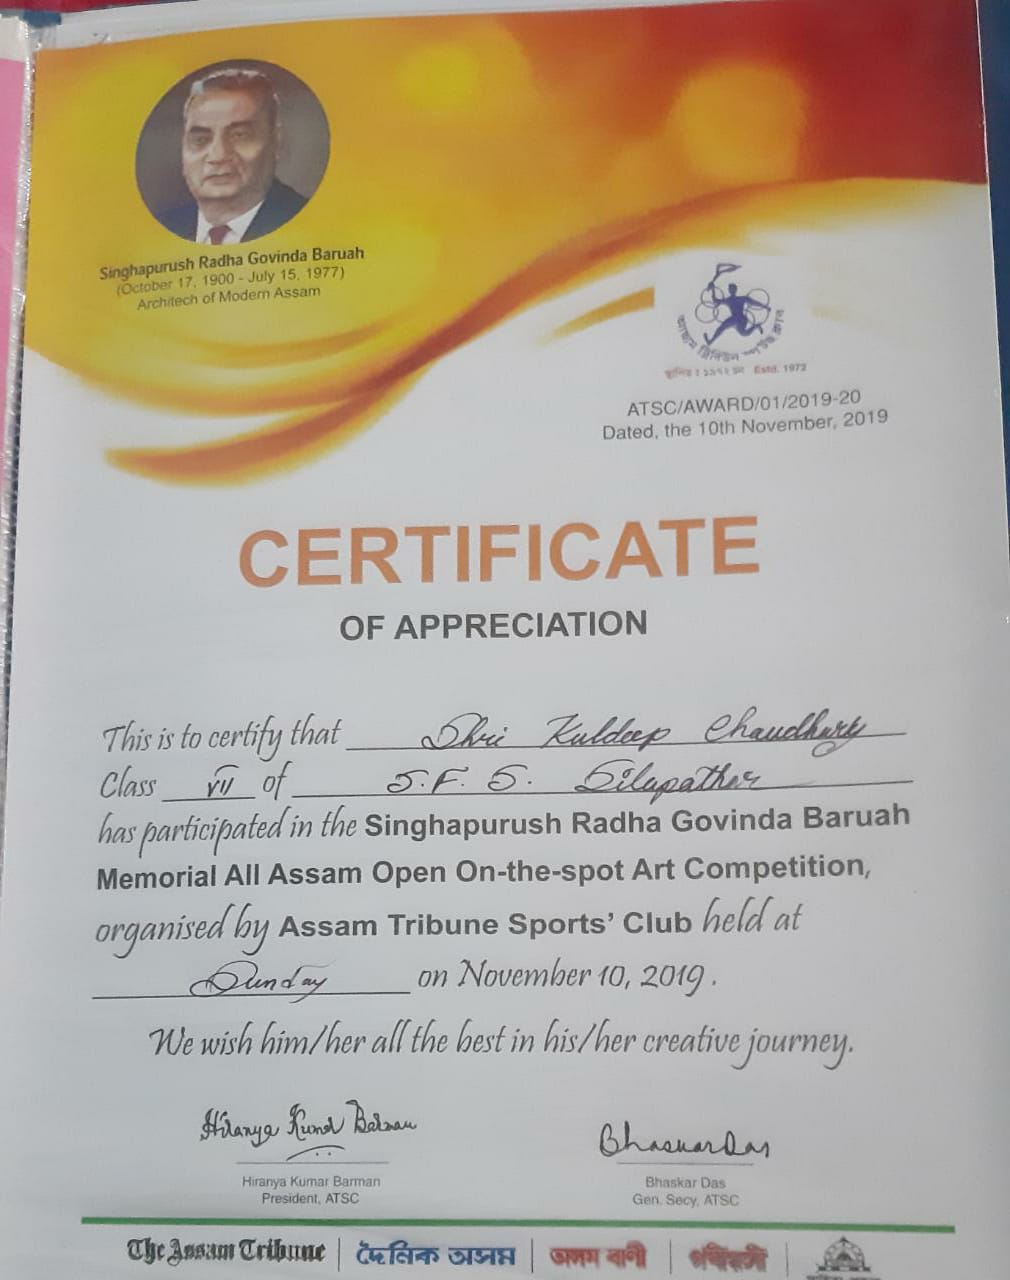 Singhapurush Radha Govinda Baruah
(October 17, 1900 - July 15, 1977)
Architech of Modern Assam
Estd. 1972
ATSC/AWARD/01/2019-20
Dated, the 10th November, 2019
CERTIFICATE
OF APPRECIATION
This is to certify that Shri Kuldeep Chaudhury
Class VII of S.F.S. Silapathar
has participated in the Singhapurush Radha Govinda Baruah
Memorial All Assam Open On-the-spot Art Competition,
organised by Assam Tribune Sports' Club held at
Sunday on November 10, 2019.
We wish him/her all the best in his/her creative journey.
Hiranya Kumar Barman
Bhaskar Das
Hiranya Kumar Barman
Bhaskar Das
President, ATSC
Gen. Secy, ATSC
The Assam Tribune | দৈনিক অসম | অসম বাণী |